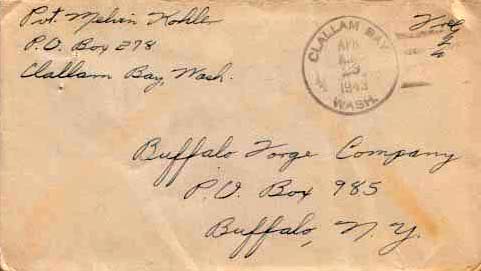 Pvt. Melvin Kohler
P.O. Box 278
Clallam Bay, Wash.
CLALLAM BAY
APR
1943
WASH.
Free
Buffalo Forge Company
P.O. Box 985
Buffalo, N.Y.